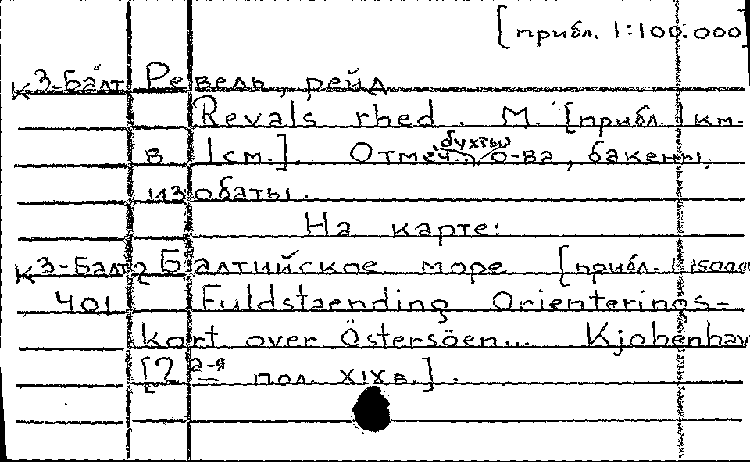 [прибл. 1:100.000]
К3-Балт Ревель, рейд
Revals rhed. М. [прибл. 1 км.
в 1см.]. Отмеч. бухты, о-ва, бакены,
изобаты.
На карте:
К3-Балт2 Балтийское море [прибл. 1:
401 Fuldstaending Orienterings-
kort over Östersöen... Kjobenhav
[2 2-я пол. XIX в.].